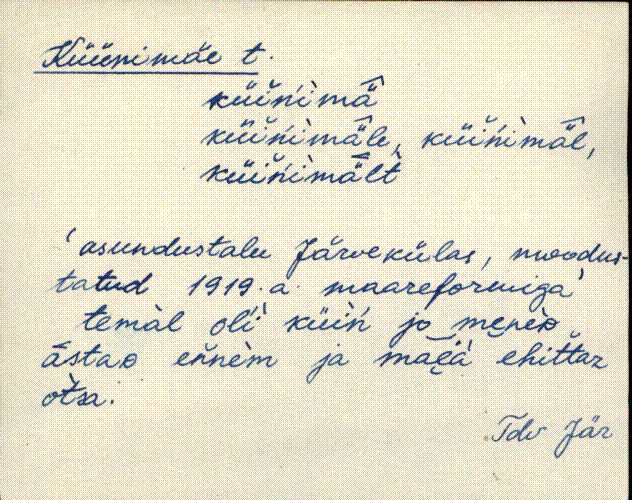 Küünimäe t.
küi̬ńìmä̂
küi̬ńìmä̂le, küi̬ńìmä̂l,
küi̬ńìmä̂lt
'asundustalu Järvekülas, moodus-
tatud 1919.a. maareformiga'
temàl oĺì küìń jo menèᴅ
ästaᴅ eńnèm ja mäe̬i̬ä ehittaz
òtsa.
Tdv Jär